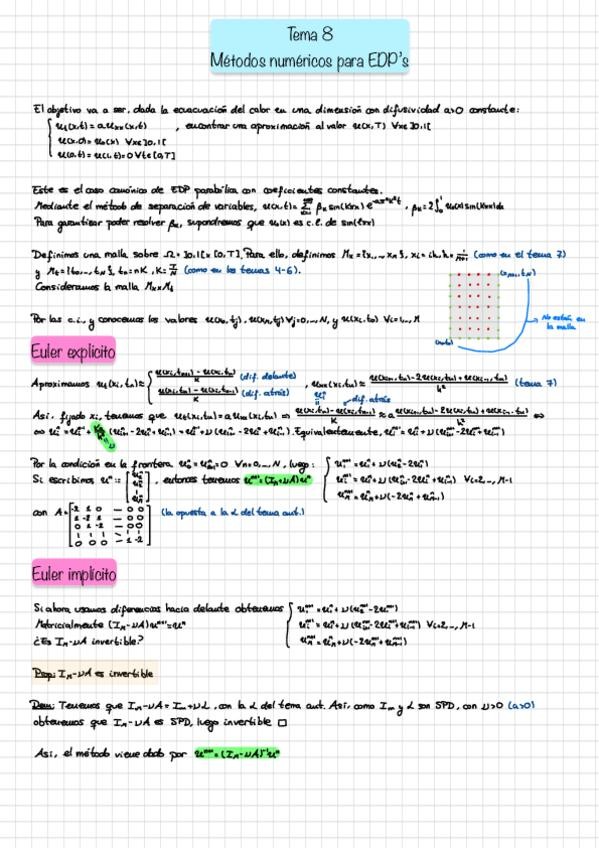 Tema 8
Métodos numéricos para EDP's
El objetivo va a ser, dada la ecuacuación del calor en una dimensión con difusividad a>0 constante:
{ u_t(x,t) = a u_xx(x,t) , encontrar una aproximación al valor u(x,T) ∀x∈]0,1[
u(x,0) = u_0(x) ∀x∈]0,1[
u(0,t) = u(1,t) = 0 ∀t∈[0,T]
Este es el caso canónico de EDP parabólica con coeficientes constantes.
Mediante el método de separación de variables, u(x,t) = Σ β_k sin(kπx) e^{-aπ²k²t}, β_k = 2∫_0^1 u_0(x) sin(kπx)dx
Para garantizar poder resolver β_k, supondremos que u_0(x) es c.l. de sin(kπx)
Definimos una malla sobre Ω = ]0,1[ x [0,T]. Para ello, definimos M_x = {x_1,...,x_M}, x_i = ih, h = 1/(M+1) (como en el tema 7)
y M_t = {t_0,...,t_N}, t_n = nK, K = T/N (como en los temas 4-6).
Consideramos la malla M_x x M_t
Por las c.i., y conocemos los valores u(x_0,t_j), u(x_{M+1},t_j) ∀j=0,...,N, y u(x_i,t_0) ∀i=1,...,M
(x_{M+1},t_N)
No están en
la malla
(x_0,t_0)
Euler explícito
Aproximamos u_t(x_i,t_n) ≈ { (u(x_i,t_{n+1}) - u(x_i,t_n))/K (dif. delante) , u_xx(x_i,t_n) ≈ (u(x_{i+1},t_n) - 2u(x_i,t_n) + u(x_{i-1},t_n))/h² (tema 7)
(u(x_i,t_n) - u(x_i,t_{n-1}))/K (dif. atrás)
dif. atrás
Así, fijado x_i, tenemos que u_t(x_i,t_n) = a u_xx(x_i,t_n) ⇒ (u(x_i,t_n) - u(x_i,t_{n-1}))/K ≈ a (u(x_{i+1},t_n) - 2u(x_i,t_n) + u(x_{i-1},t_n))/h² ⇔
Equivalentemente, u_i^{n+1} = u_i^n + ν(u_{i+1}^n - 2u_i^n + u_{i-1}^n)
Por la condición en la frontera u_0^n = u_{M+1}^n = 0 ∀n=0,...,N, luego: { u_1^{n+1} = u_1^n + ν(u_2^n - 2u_1^n)
Si escribimos u^n := [u_1^n u_2^n ⋮ u_M^n], entonces tenemos u^{n+1} = (I_M + νA)u^n u_i^{n+1} = u_i^n + ν(u_{i+1}^n - 2u_i^n + u_{i-1}^n) ∀i=2,..., M-1
u_M^{n+1} = u_M^n + ν(-2u_M^n + u_{M-1}^n)
con A = [-2 1 0 — 0 0
1 -2 1 — 0 0
0 1 -2 — 0 0
0 0 0 — 1 -2] (la opuesta a la L del tema ant.)
Euler implícito
Si ahora usamos diferencias hacia delante obtenemos { u_1^{n+1} = u_1^n + ν(u_2^{n+1} - 2u_1^{n+1})
Matricialmente (I_M - νA)u^{n+1} = u^n u_i^{n+1} = u_i^n + ν(u_{i+1}^{n+1} - 2u_i^{n+1} + u_{i-1}^{n+1}) ∀i=2,..., M-1
¿Es I_M - νA invertible? u_M^{n+1} = u_M^n + ν(-2u_M^{n+1} + u_{M-1}^{n+1})
Prop: I_M - νA es invertible
Dem: Tenemos que I_M - νA = I_M + νL, con la L del tema ant. Así, como I_M y L son SPD, con ν>0 (a>0)
obtenemos que I_M - νA es SPD, luego invertible □
Así, el método viene dado por u^{n+1} = (I_M - νA)^{-1}u^n